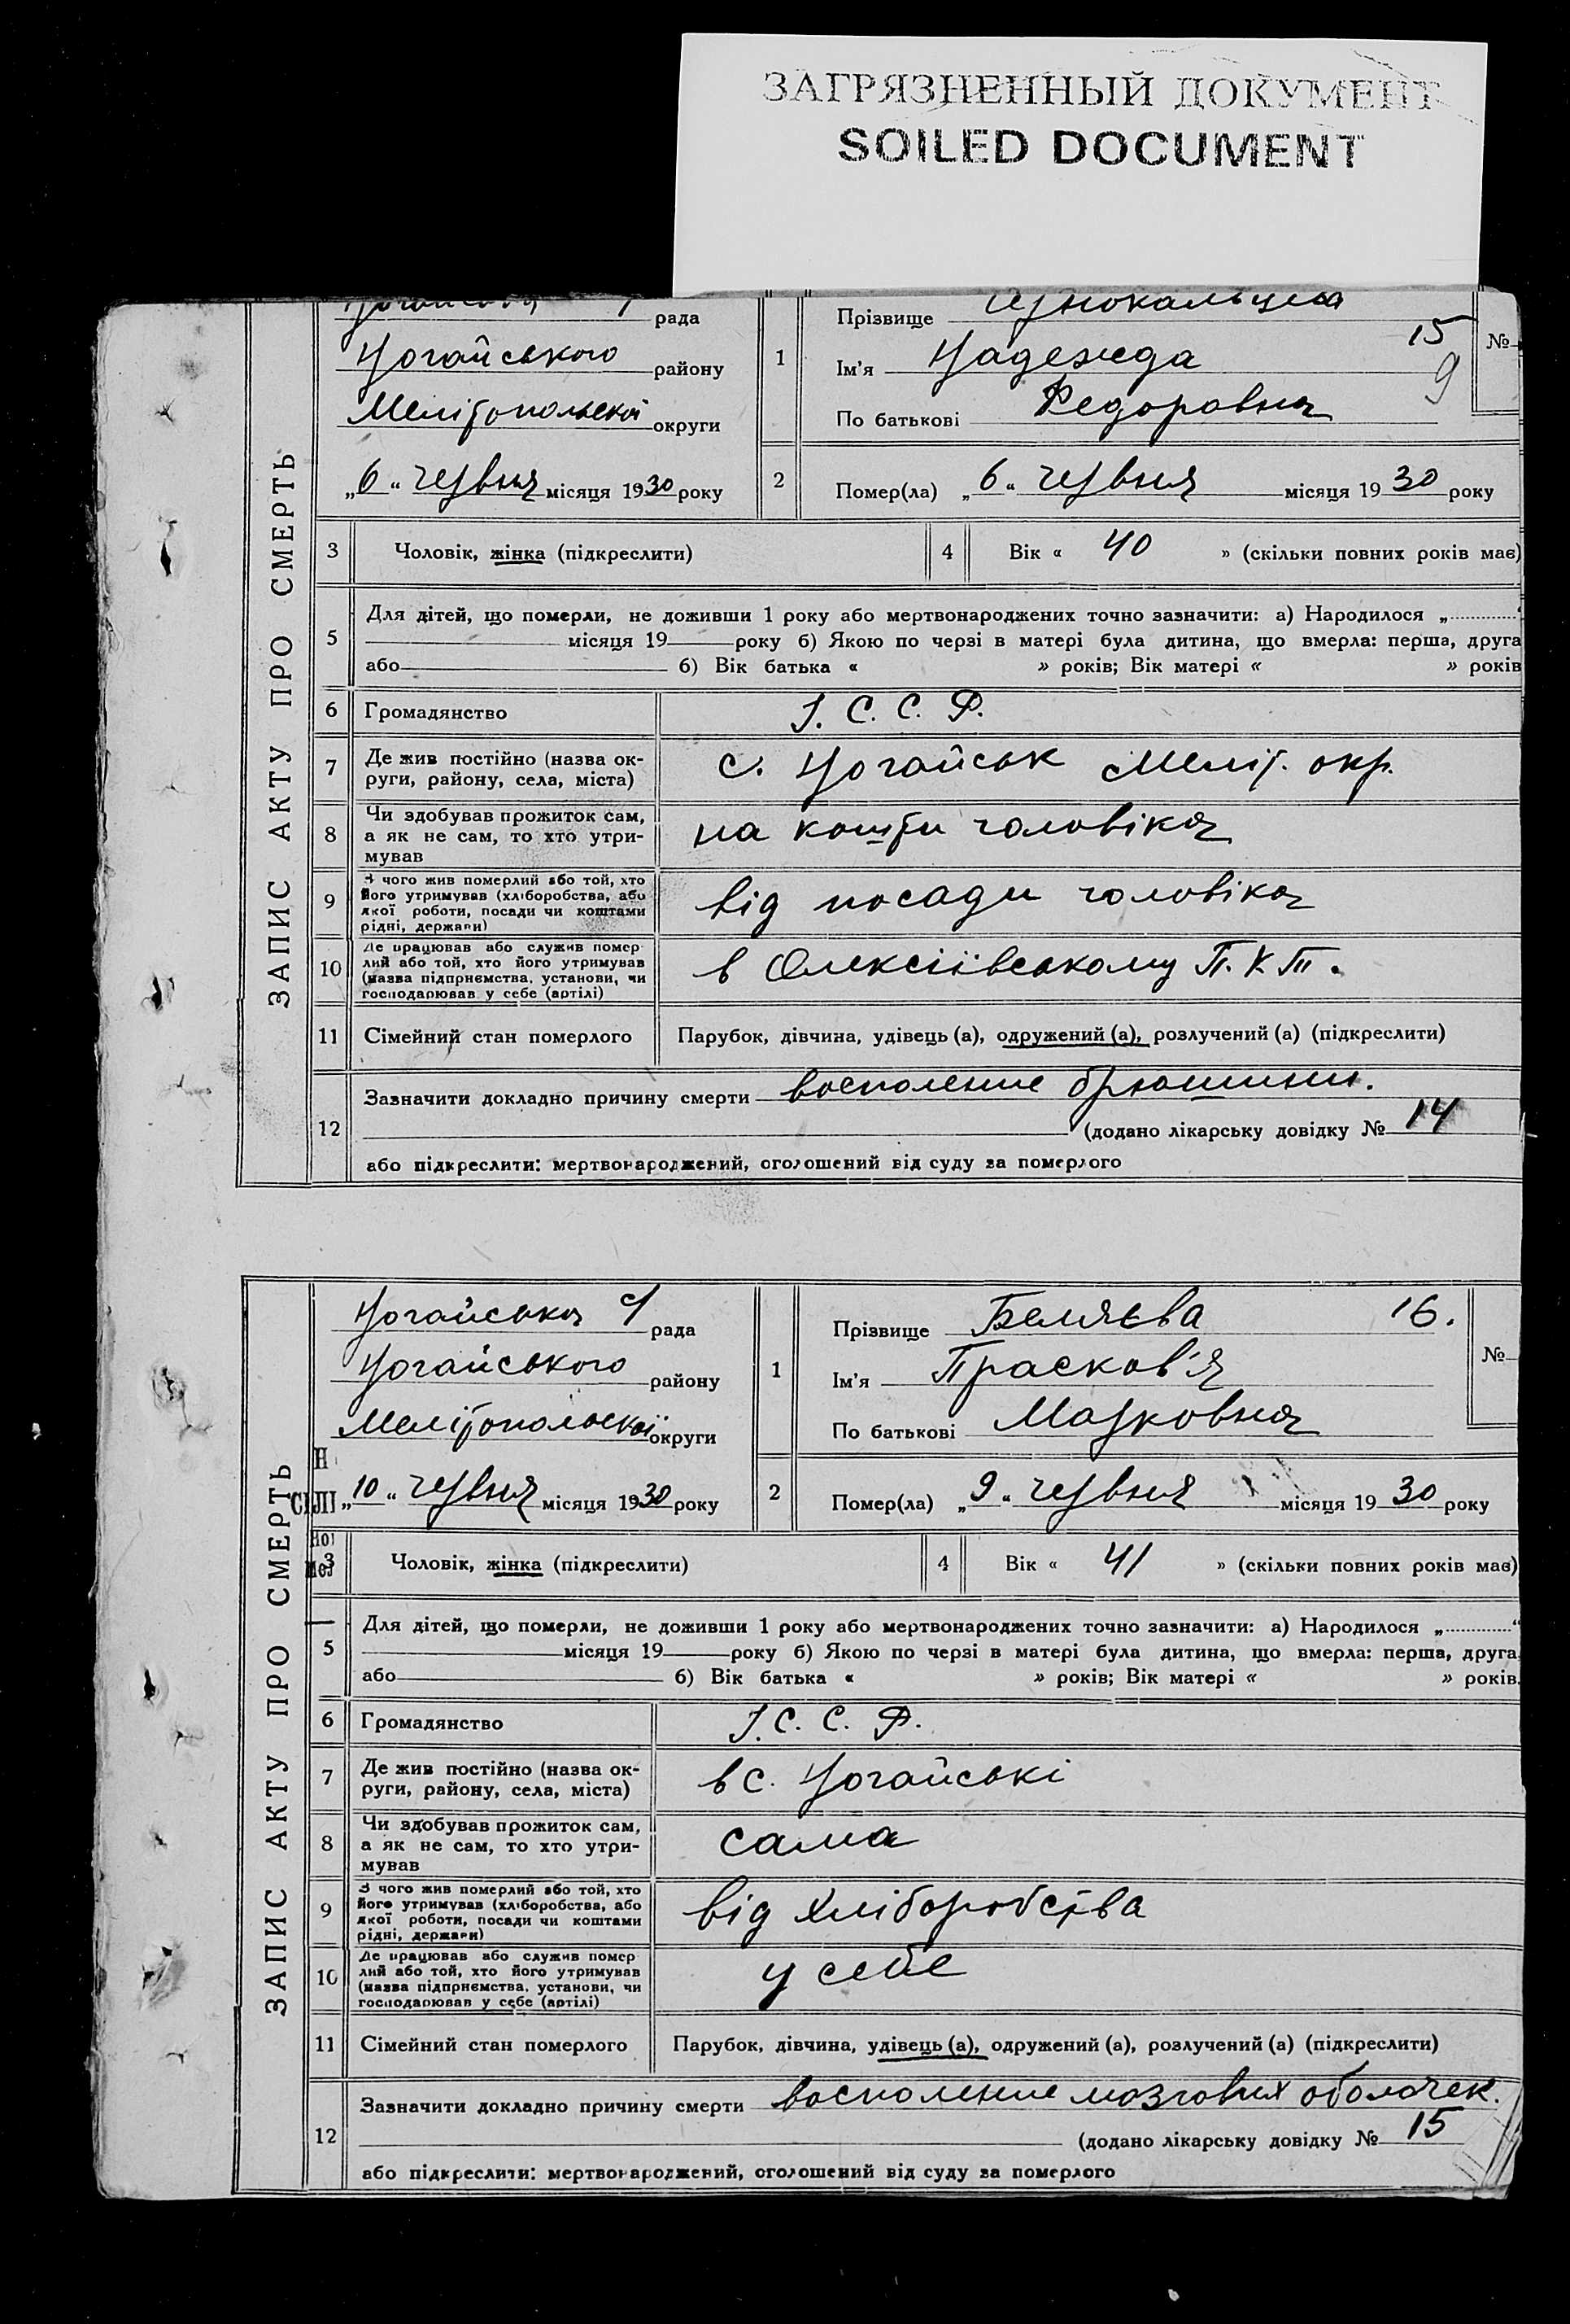 ЗАГРЯЗНЕННЫЙ ДОКУМЕНТ
SOILED DOCUMENT
ЗАПИС АКТУ ПРО СМЕРТЬ
рада
Ногайського району
Мелітопольскої округи
„6“ червня місяця 1930 року
1
Прізвище
15
№
Ім'я Надежда
9
По батькові Федоровна
2
Помер(ла) „6“ червня місяця 1930 року
3 Чоловік, жінка (підкреслити)
4 Вік « 40 » (скільки повних років має)
5
Для дітей, що померли, не доживши 1 року або мертвонароджених точно зазначити: а) Народилося „
місяця 19 року б) Якою по черзі в матері була дитина, що вмерла: перша, друга
або б) Вік батька « » років; Вік матері « » років
6 Громадянство
С. С. Р.
7
Де жив постійно (назва ок-
руги, району, села, міста)
с. Ногайськ Меліт. окр.
8
Чи здобував прожиток сам,
а як не сам, то хто утри-
мував
на кошти чоловіка
9
З чого жив померлий або той, хто
його утримував (хліборобства, або
якої роботи, посади чи коштами
рідні, держави)
від посади чоловіка
10
Де працював або служив помер
лий або той, хто його утримував
(назва підприємства, установи, чи
господарював у себе (артілі)
в Олексіївському П.К.Т.
11 Сімейний стан померлого
Парубок, дівчина, удівець (а), одружений (а), розлучений (а) (підкреслити)
12
Зазначити докладно причину смерти воспаление брюшины.
(додано лікарську довідку № 14
або підкреслити: мертвонароджений, оголошений від суду за померлого
ЗАПИС АКТУ ПРО СМЕРТЬ
Ногайська с/ рада
Ногайського району
Мелітопольскої округи
„10“ червня місяця 1930 року
1
Прізвище Беляєва 16.
№
Ім'я Прасков'я
По батькові Марковна
2
Помер(ла) „9“ червня місяця 1930 року
3 Чоловік, жінка (підкреслити)
4 Вік « 41 » (скільки повних років має)
5
Для дітей, що померли, не доживши 1 року або мертвонароджених точно зазначити: а) Народилося „ “
місяця 19 року б) Якою по черзі в матері була дитина, що вмерла: перша, друга
або б) Вік батька « » років; Вік матері « » років.
6 Громадянство
С. С. Р.
7
Де жив постійно (назва ок-
руги, району, села, міста)
в с. Ногайські
8
Чи здобував прожиток сам,
а як не сам, то хто утри-
мував
сама
9
З чого жив померлий або той, хто
його утримував (хліборобства, або
якої роботи, посади чи коштами
рідні, держави)
від хліборобства
10
Де працював або служив помер
лий або той, хто його утримував
(назва підприємства, установи, чи
господарював у себе (артілі)
у себе
11 Сімейний стан померлого
Парубок, дівчина, удівець (а), одружений (а), розлучений (а) (підкреслити)
12
Зазначити докладно причину смерти воспаление мозговых оболочек.
(додано лікарську довідку № 15
або підкреслити: мертвонароджений, оголошений від суду за померлого